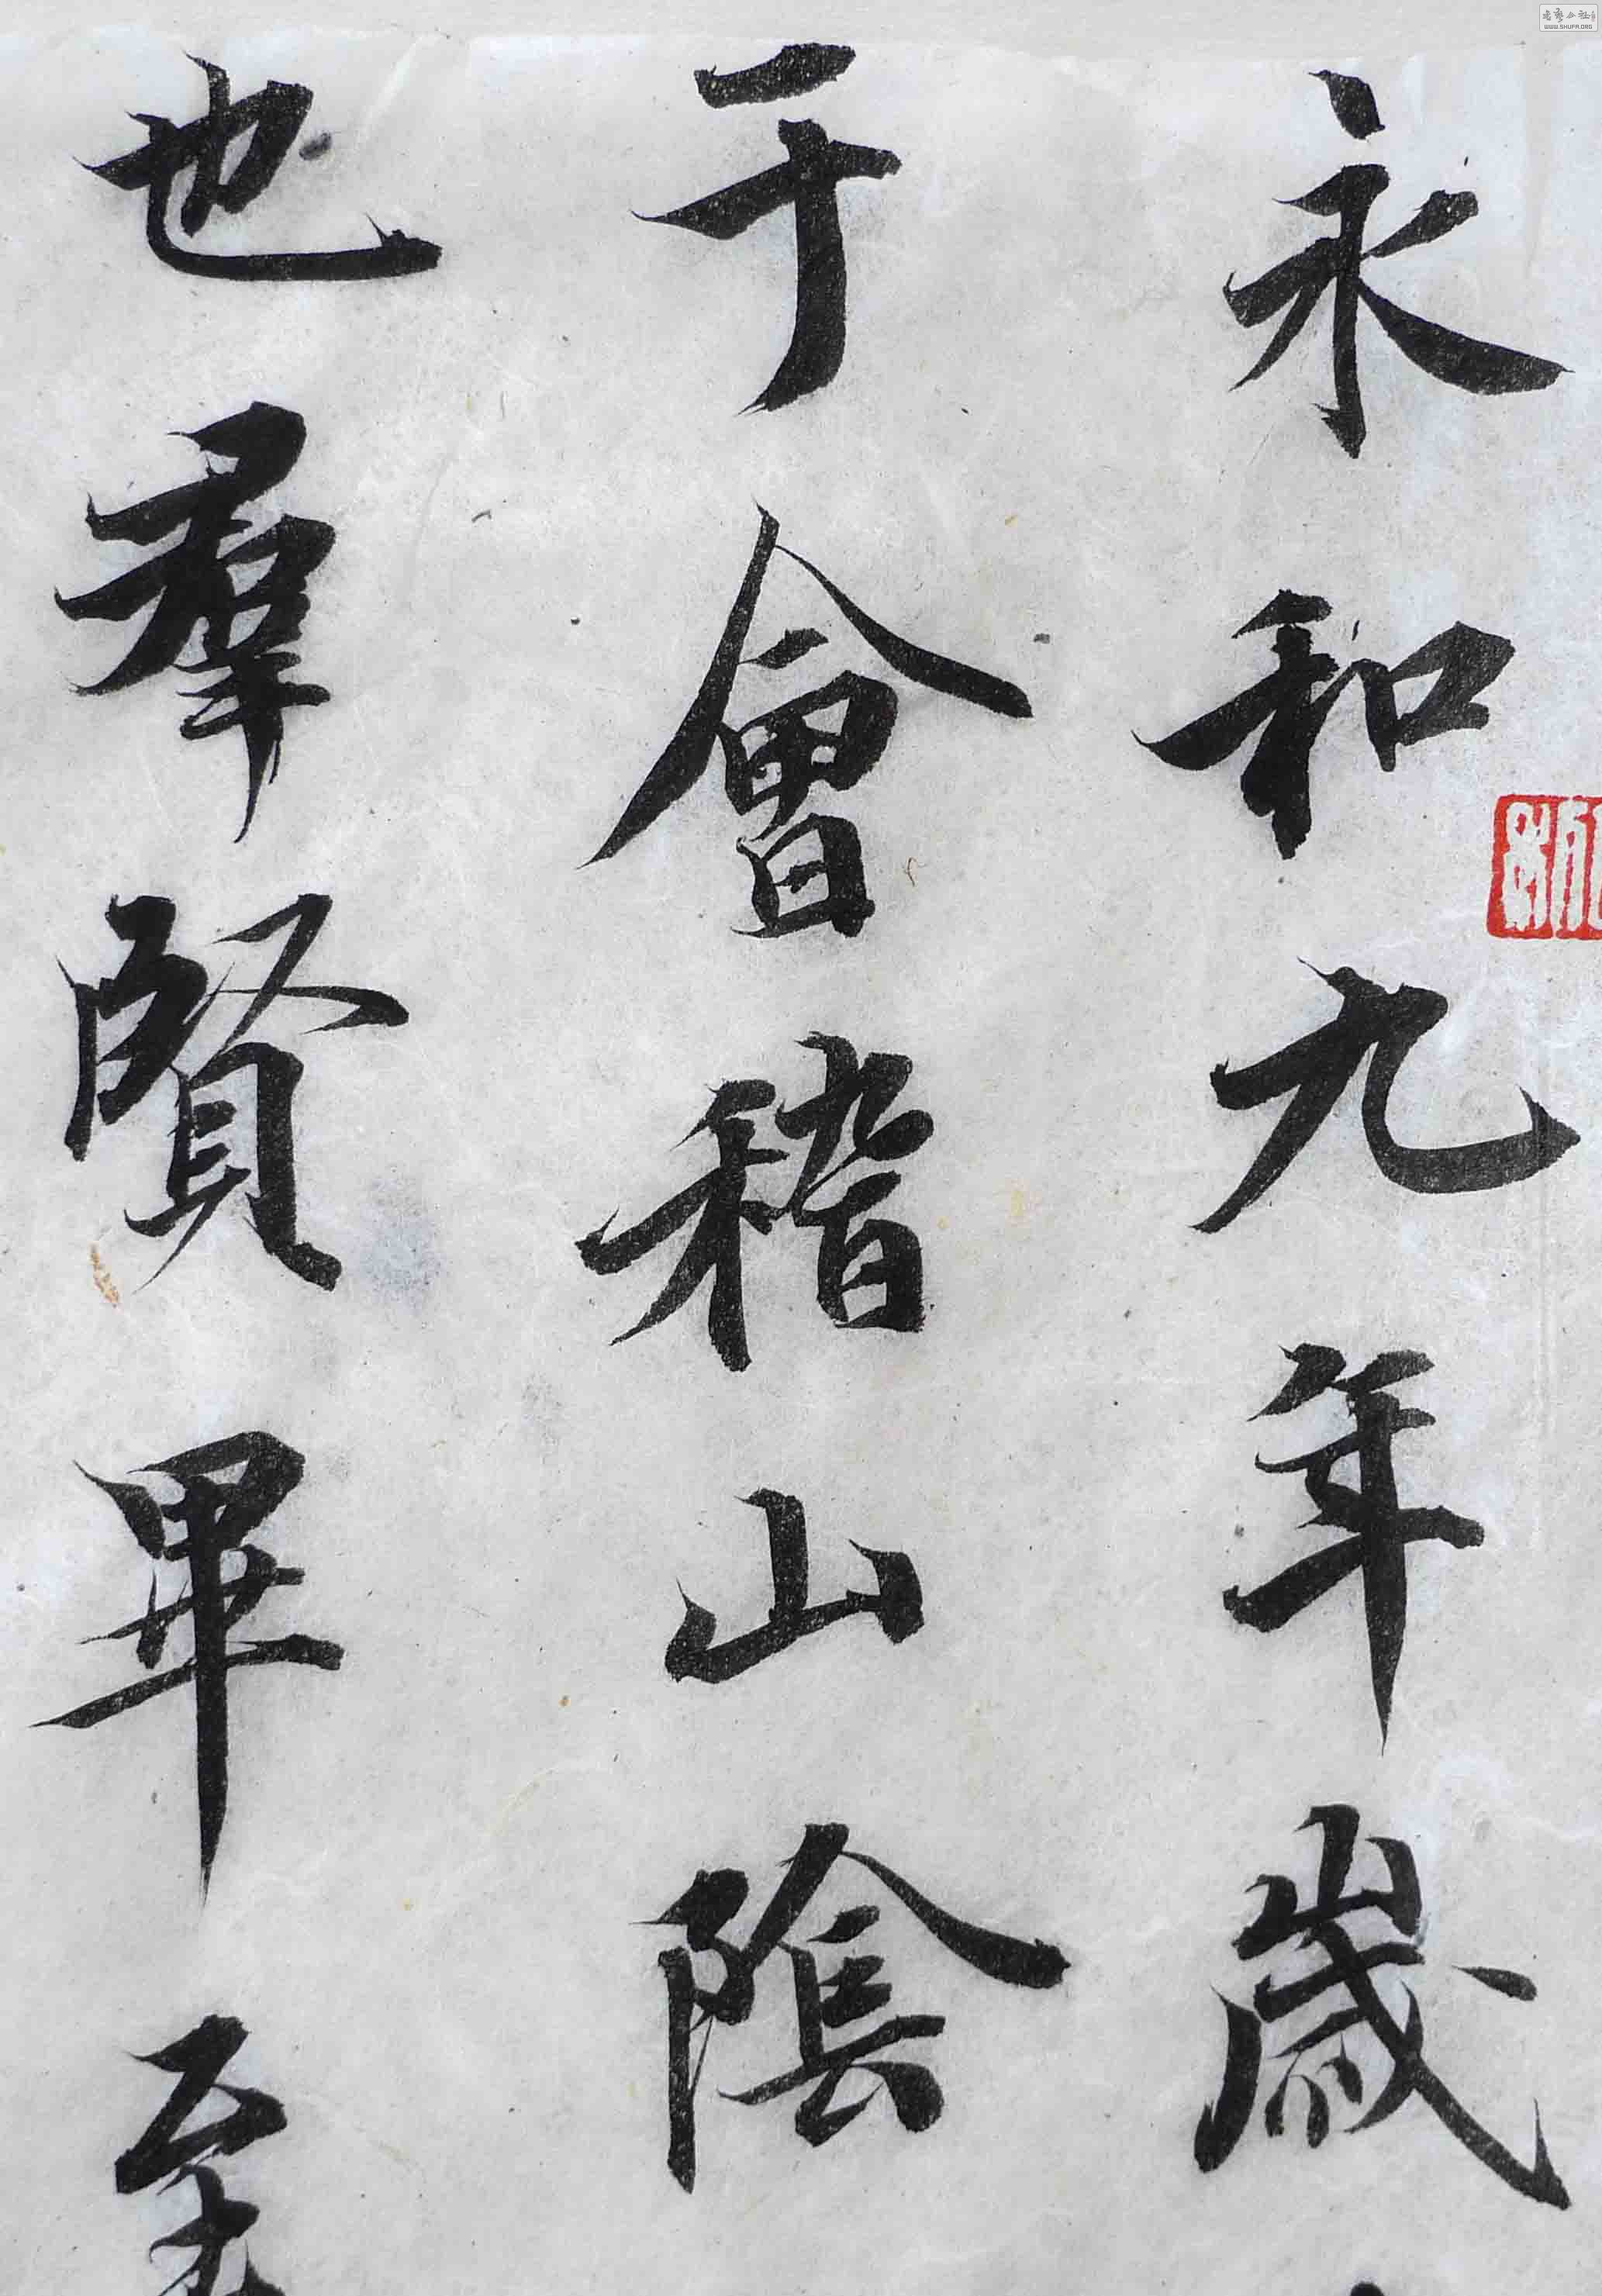 永和九年歲
于會稽山陰
也羣賢畢至
WWW.SHUFA.ORG